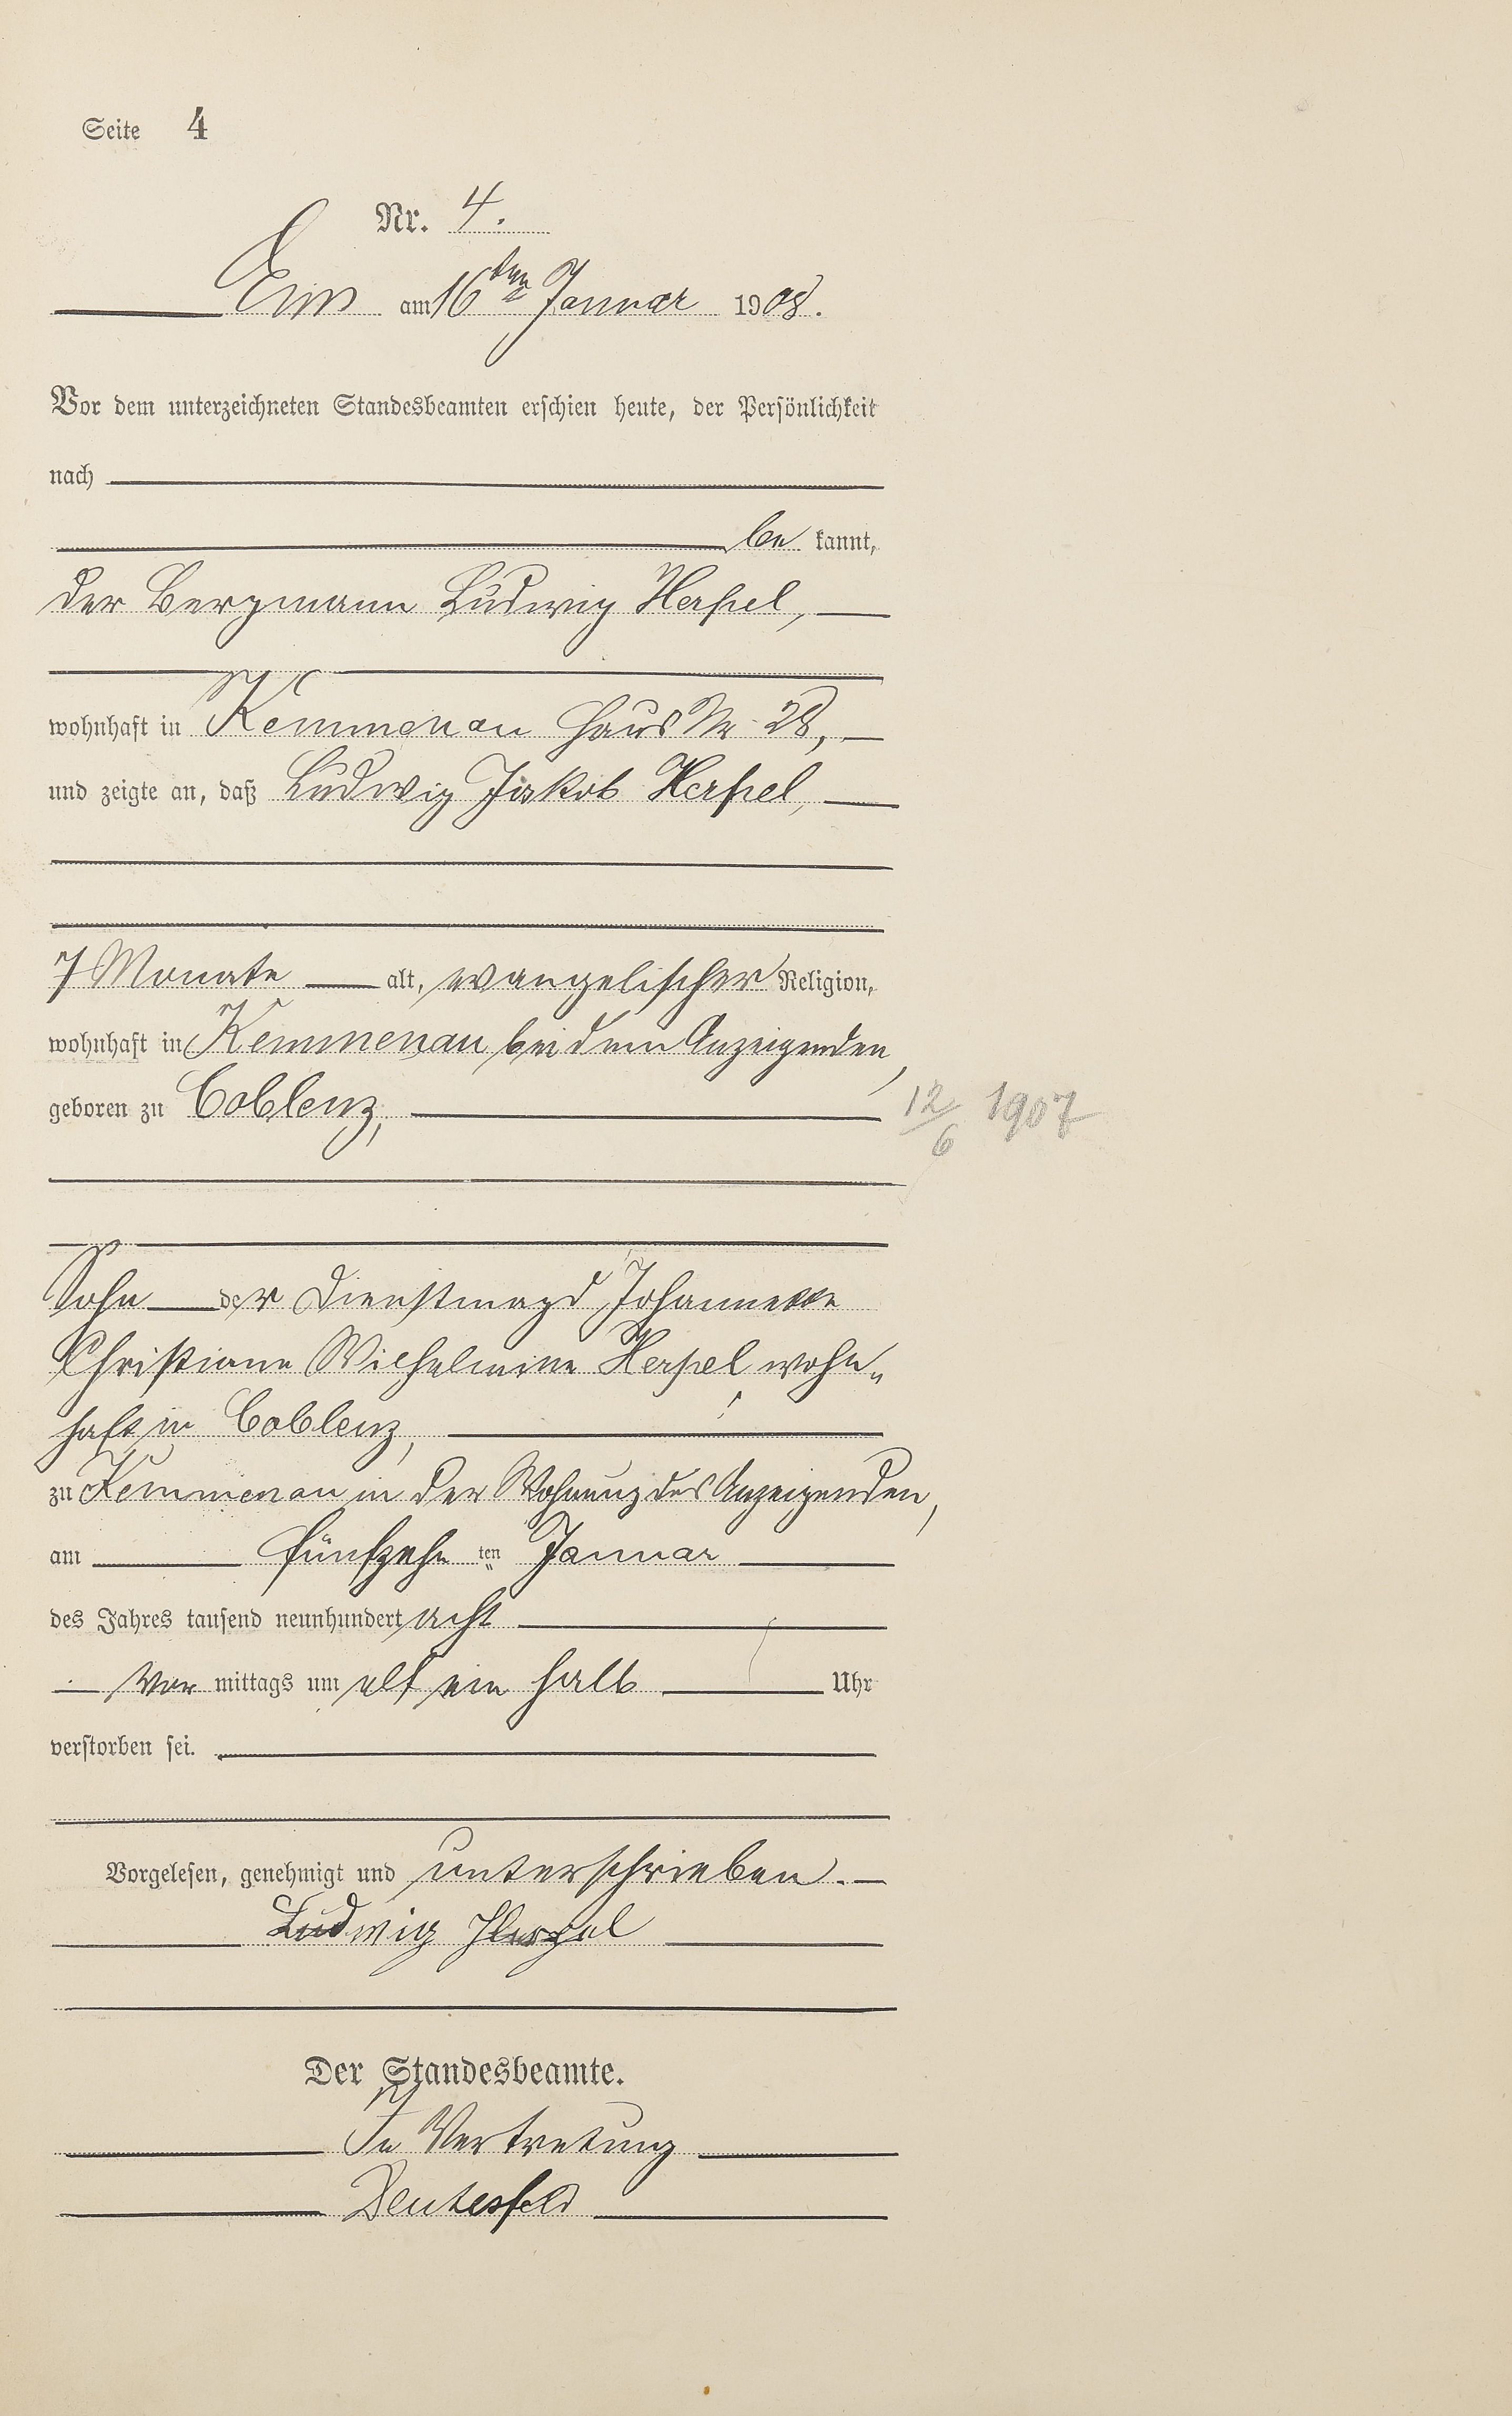 Seite 4
Nr. 4.
Ems am 16ten Januar 1908.
Vor dem unterzeichneten Standesbeamten erschien heute, der Persönlichkeit
nach
be kannt,
der Bergmann Ludwig Herpel,
wohnhaft in Kemmenau Haus Nr 28,
und zeigte an, daß Ludwig Jakob Herpel,
7 Monate alt, evangelischer Religion,
wohnhaft in Kemmenau bei dem Anzeigenden,
geboren zu Coblenz,
12/6 1907
Sohn der Dienstmagd Johannette
Christiane Wilhelmine Herpel wohn„
haft in Coblenz,
zu Kemmenau in der Wohnung des Anzeigenden,
am fünfzehn ten Januar
des Jahres tausend neunhundert acht
Vor mittags um elf ein halb Uhr
verstorben sei.
Vorgelesen, genehmigt und unterschrieben.
Ludwig Herpel
Der Standesbeamte.
In Vertretung
Deutesfeld